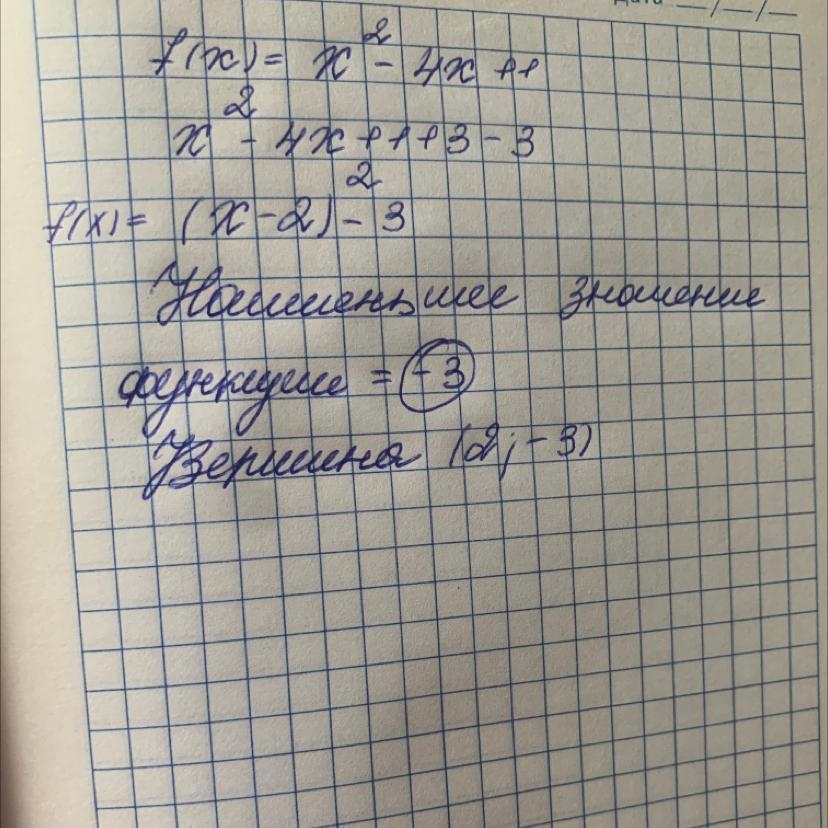 Дата __/__/__
f(x) = x² - 4x + 1
x² - 4x + 1 + 3 - 3
f(x) = (x - 2)² - 3
Наименьшее значение
функции = -3
Вершина (2; -3)